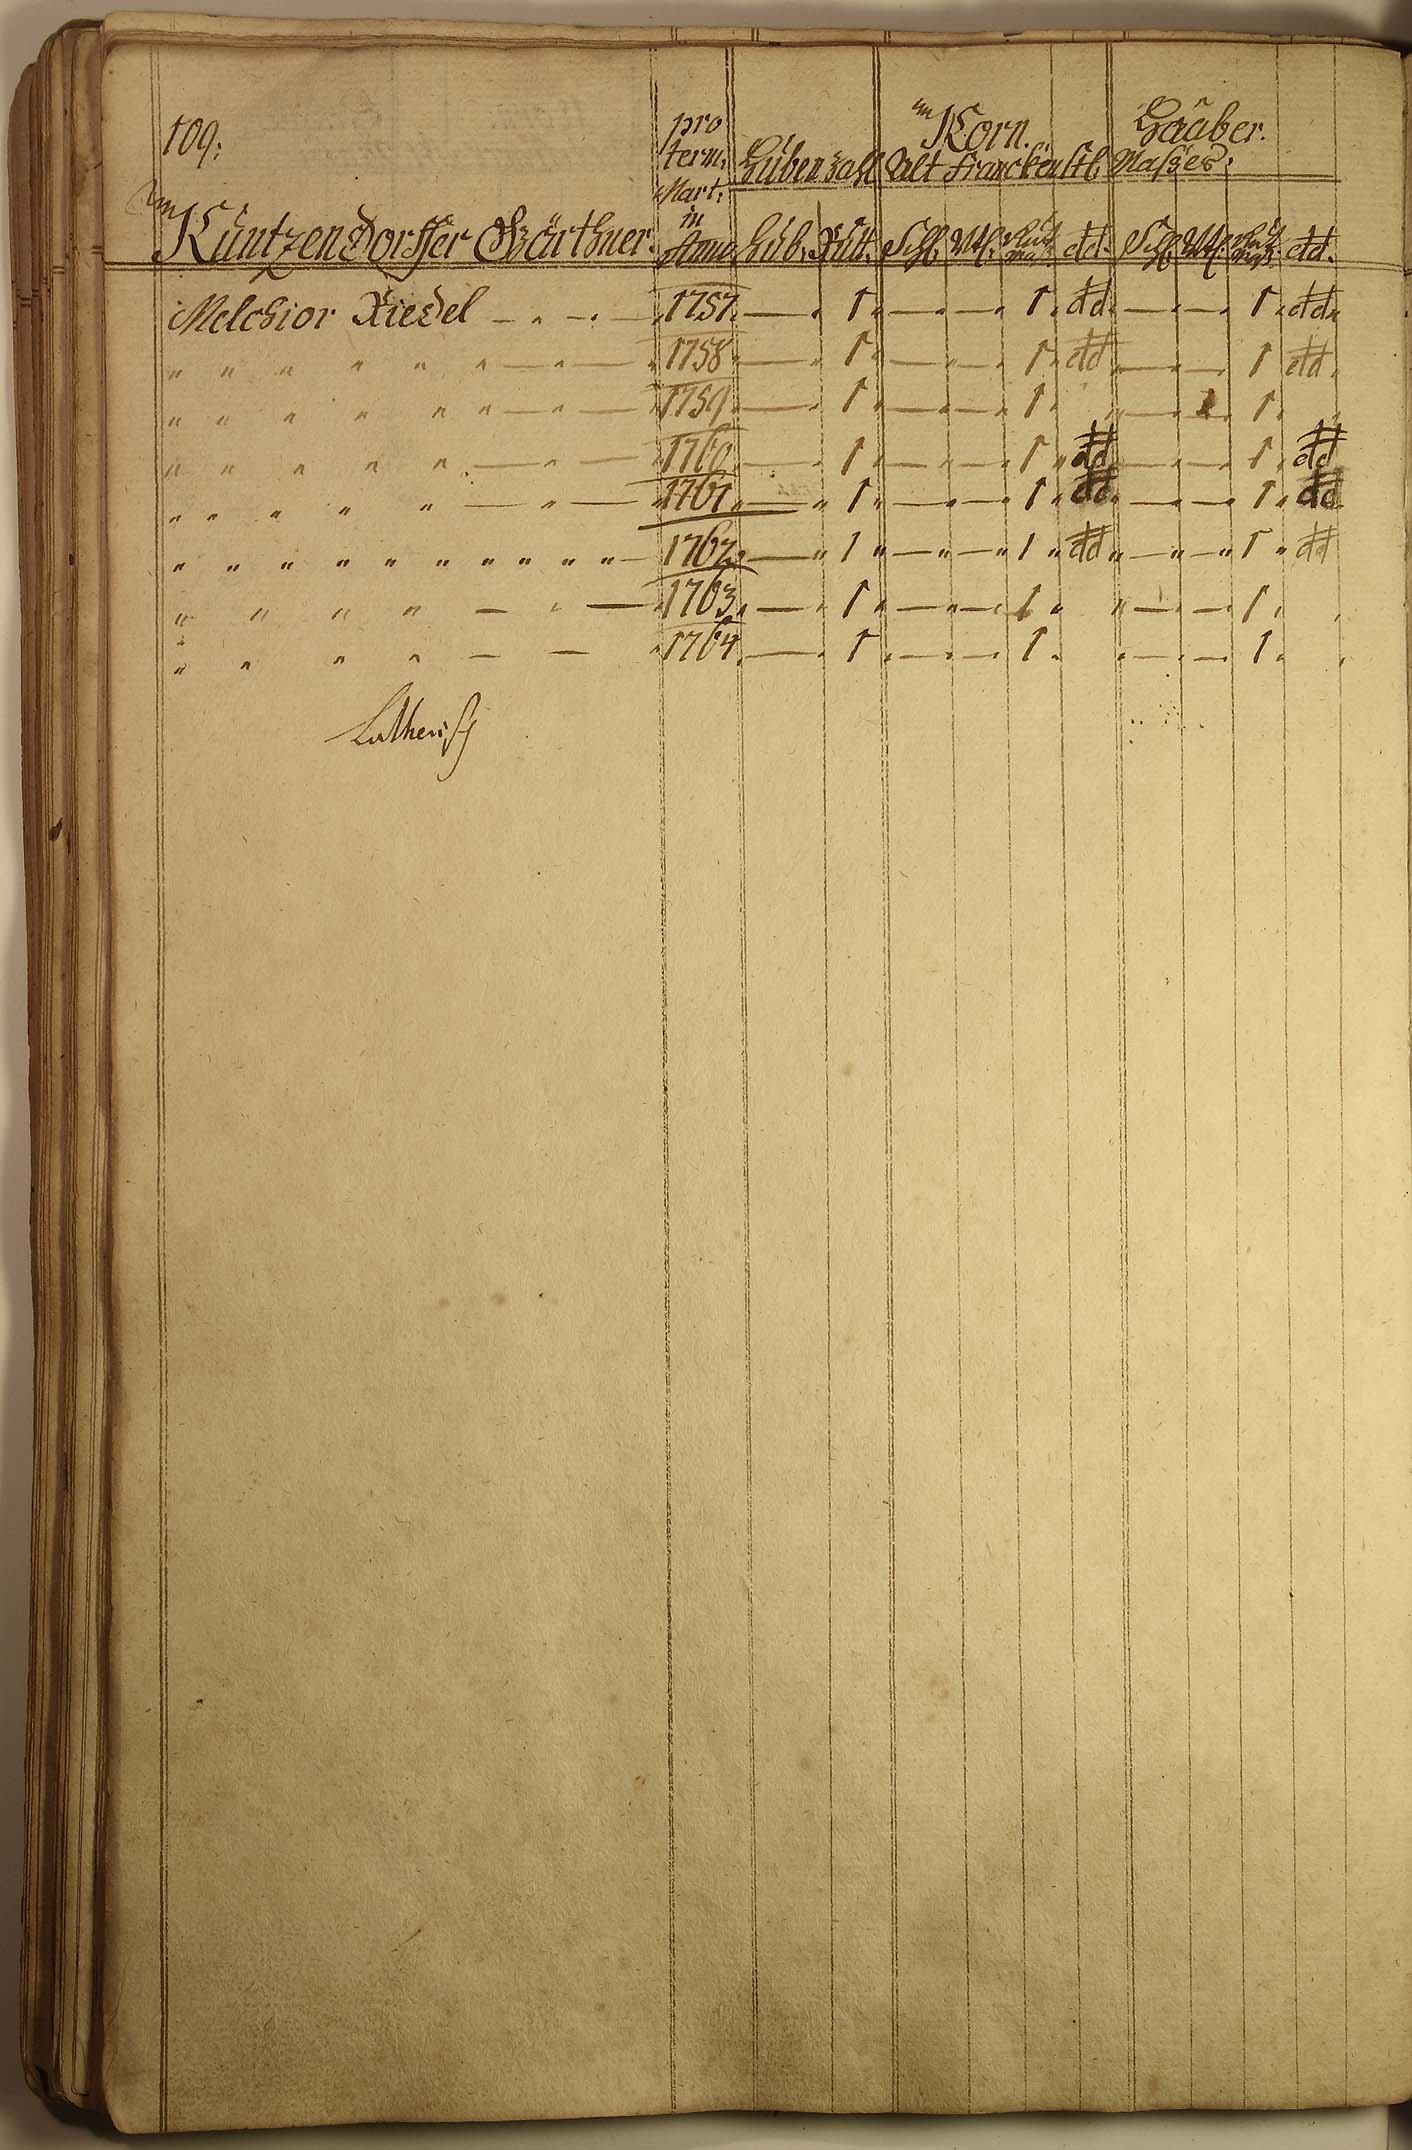 109:
pro term: Mart: in Anno
Korn. Haaber.
Huben zahl Alt Franckenstl. Masses:
Kuntzendorffer Gärthner.
Hub. Rutt. Schl. Vtl. dd. Schl. Vtl. dd.
Melchior Riedel — " — " — 1757. — " 1 " — " — " 1 " dd " — " — " 1 " dd "
" " " " " " — " — 1758 " — " 1 " — " — " 1 " dd " — " — " 1 " dd "
" " " " " " — " — 1759 " — " 1 " — " — " 1 " " — " — " 1 " "
" " " " " — " — 1760 " — " 1 " — " — " 1 " dd " — " — " 1 " dd
" " " " " — " — 1761 " — " 1 " — " — " 1 " dd " — " — " 1 " dd
" " " " " " " " " " " — 1762 " — " 1 " — " — " 1 " dd " — " — " 1 " dd
" " " " — " — 1763 " — " 1 " — " — " 1 " " — " — " 1 " "
" " " " — — " 1764 " — " 1 " — " — " 1 " " — " — " 1 " "
Lutherisch